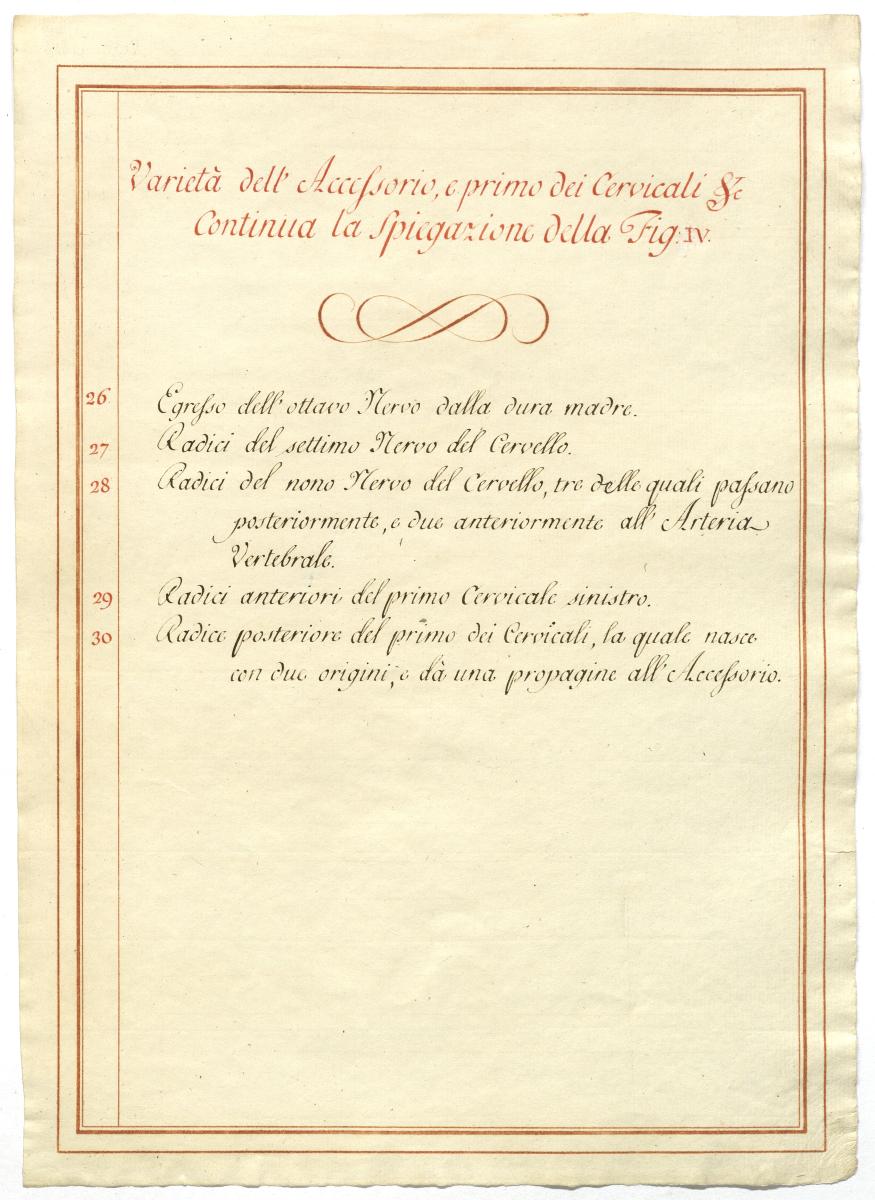 Varietà dell' Accessorio, e primo dei Cervicali &c
Continua la Spiegazione della Fig: IV.
26 Egresso dell' ottavo Nervo dalla dura madre.
27 Radici del settimo Nervo del Cervello.
28 Radici del nono Nervo del Cervello, tre delle quali passano
posteriormente, e due anteriormente all' Arteria
Vertebrale.
29 Radici anteriori del primo Cervicale sinistro.
30 Radice posteriore del primo dei Cervicali, la quale nasce
con due origini, e dà una propagine all' Accessorio.